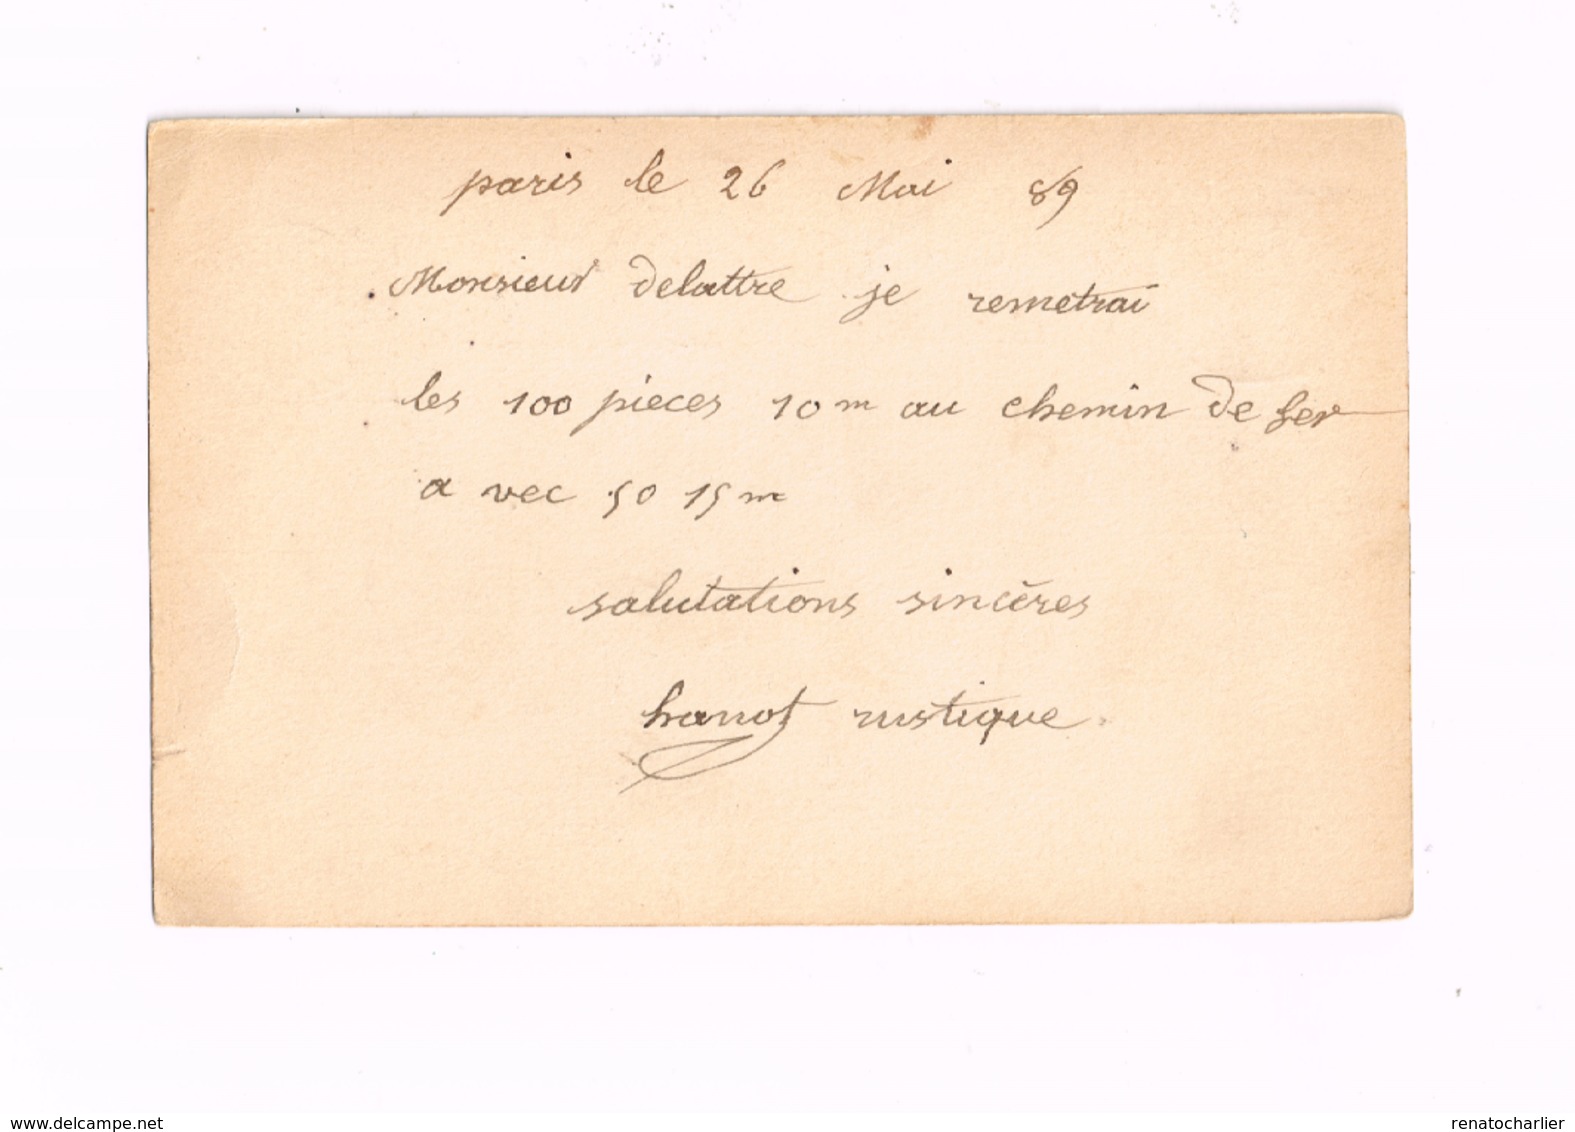 paris le 26 Mai 89
Monsieur delattre je remetrai
les 100 pieces 10 m au chemin de fer
a vec 50 15 m
salutations sincères
hanot rustique
www.delcampe.net
renatocharlier